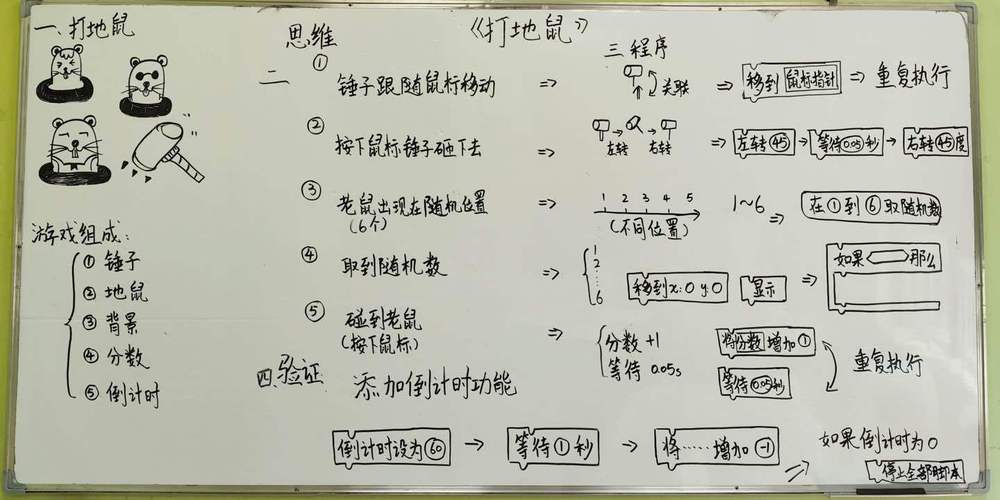 《打地鼠》
一、打地鼠
游戏组成:
① 锤子
② 地鼠
③ 背景
④ 分数
⑤ 倒计时
二 思维
三 程序
① 锤子跟随鼠标移动 => 关联 => 移到 鼠标指针 => 重复执行
② 按下鼠标锤子砸下去 => 左转 右转 => 左转 45 → 等待 0.05 秒 → 右转 45 度
③ 老鼠出现在随机位置 => 1 2 3 4 5 1~6 => 在 1 到 6 取随机数
(6个) (不同位置)
④ 取到随机数 => 1 2 ... 6 移到x:0 y:0 显示 => 如果 那么
⑤ 碰到老鼠 => 分数 +1 将分数 增加 1
(按下鼠标) 等待 0.05s 等待 0.05 秒 重复执行
四、验证 添加倒计时功能
倒计时设为 60 → 等待 1 秒 → 将……增加 -1 => 如果倒计时为0
停止全部脚本